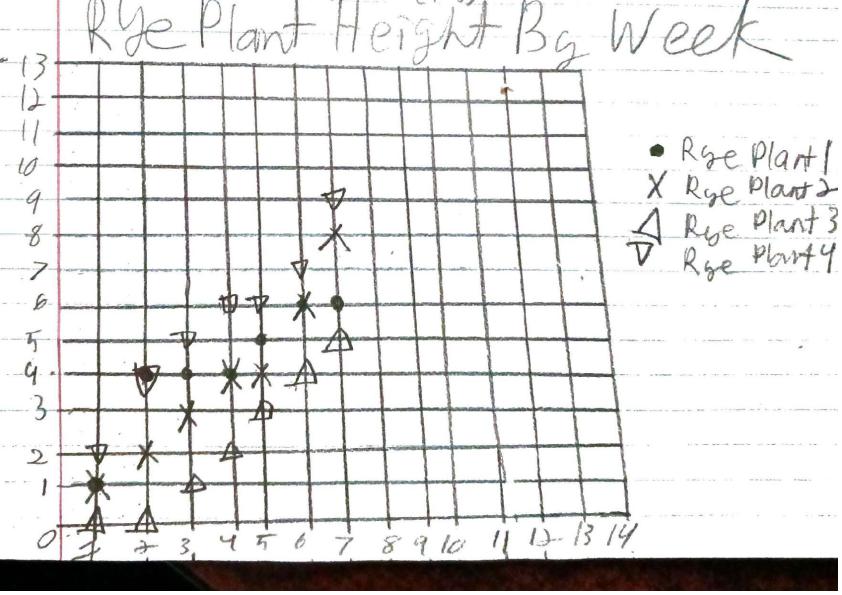 Rye Plant Height By Week
13
12
11
10
9
8
7
6
5
4
3
2
1
0
1 2 3 4 5 6 7 8 9 10 11 12 13 14
Rye Plant 1
X Rye Plant 2
Rye Plant 3
Rye Plant 4